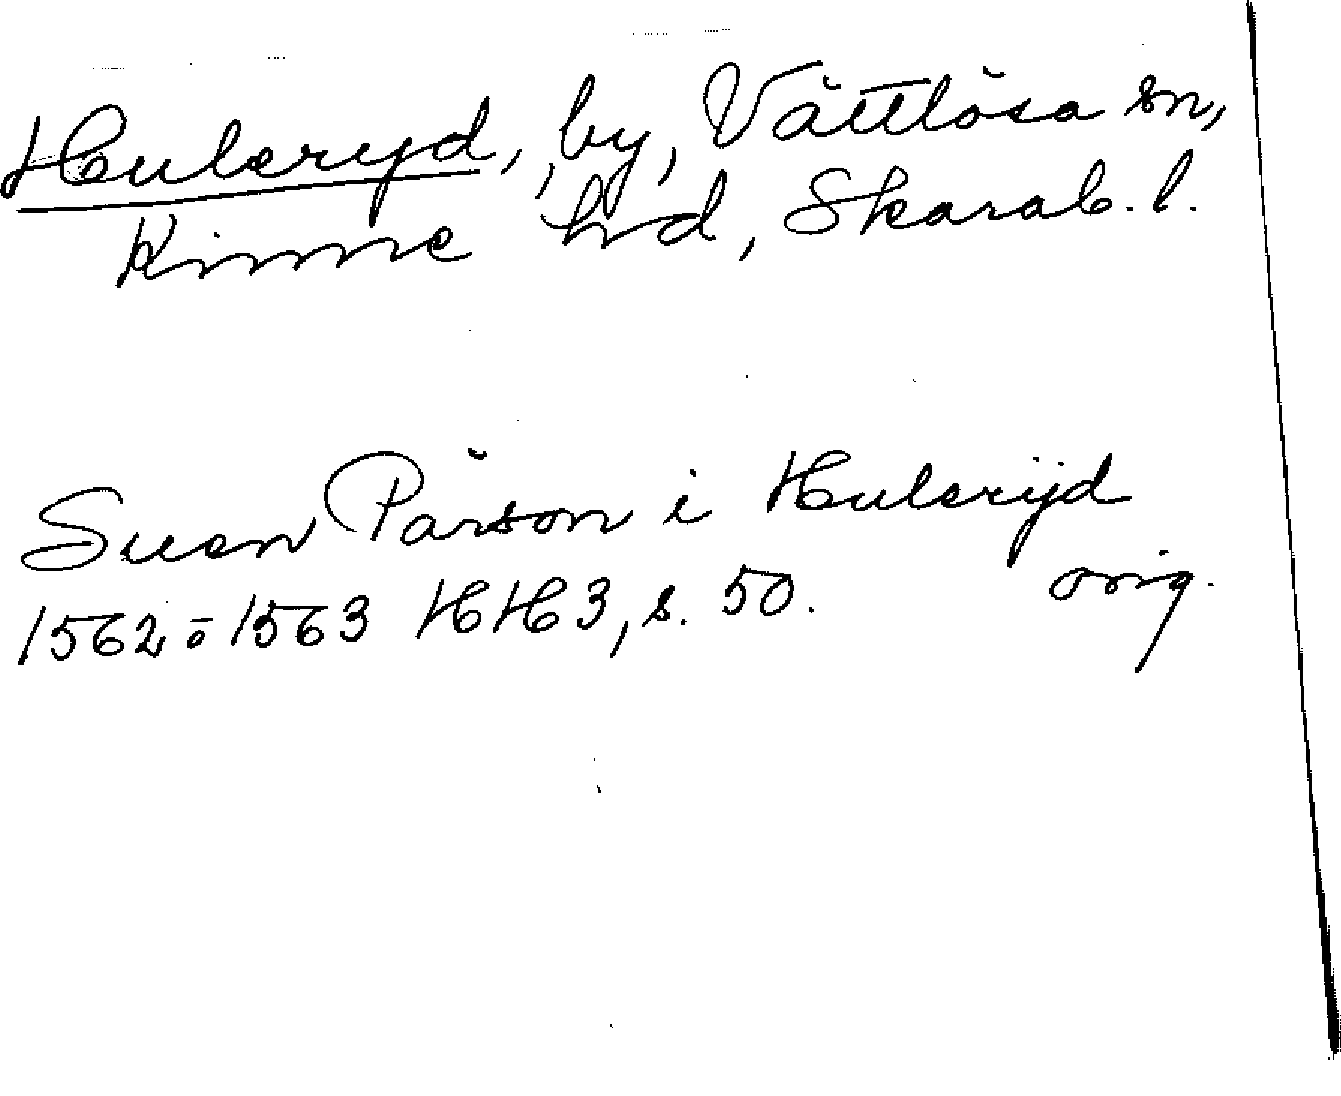 Huleryd, by, Vättlösa sn,
Kinne hd, Skarab. l.
Suen Pärson i Hulerijd
1562 ō 1563 HH 3, s. 50. orig.